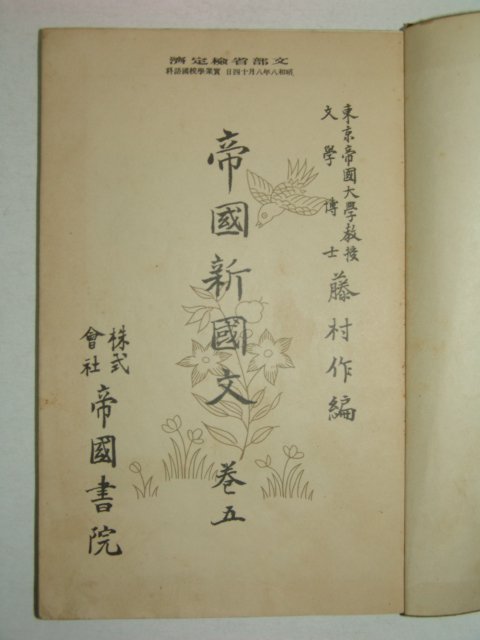 文部省檢定濟
昭和八年八月十四日 實業學校國語科
東京帝國大學教授
文學博士
藤村作編
帝國新國文 卷五
株式
會社
帝國書院